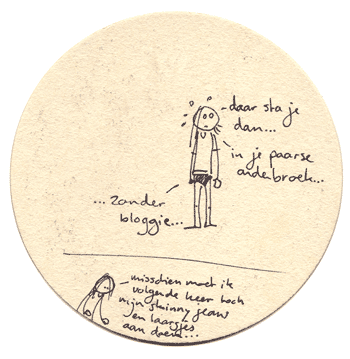 daar sta je
dan...
in je paarse
onderbroek...
...zonder
bloggie...
misschien moet ik
volgende keer toch
mijn skinny jeans
en laarsjes
aan doen...